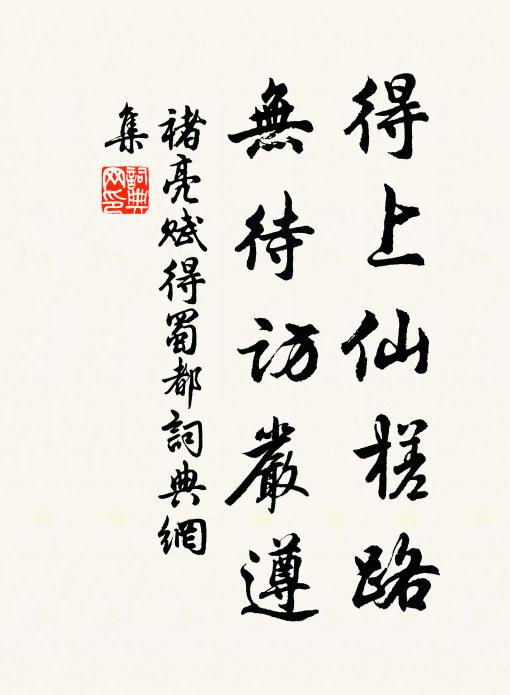 得上仙槎路
無待訪嚴遵
褚亮賦得蜀都詞典網
集
詞典
网印